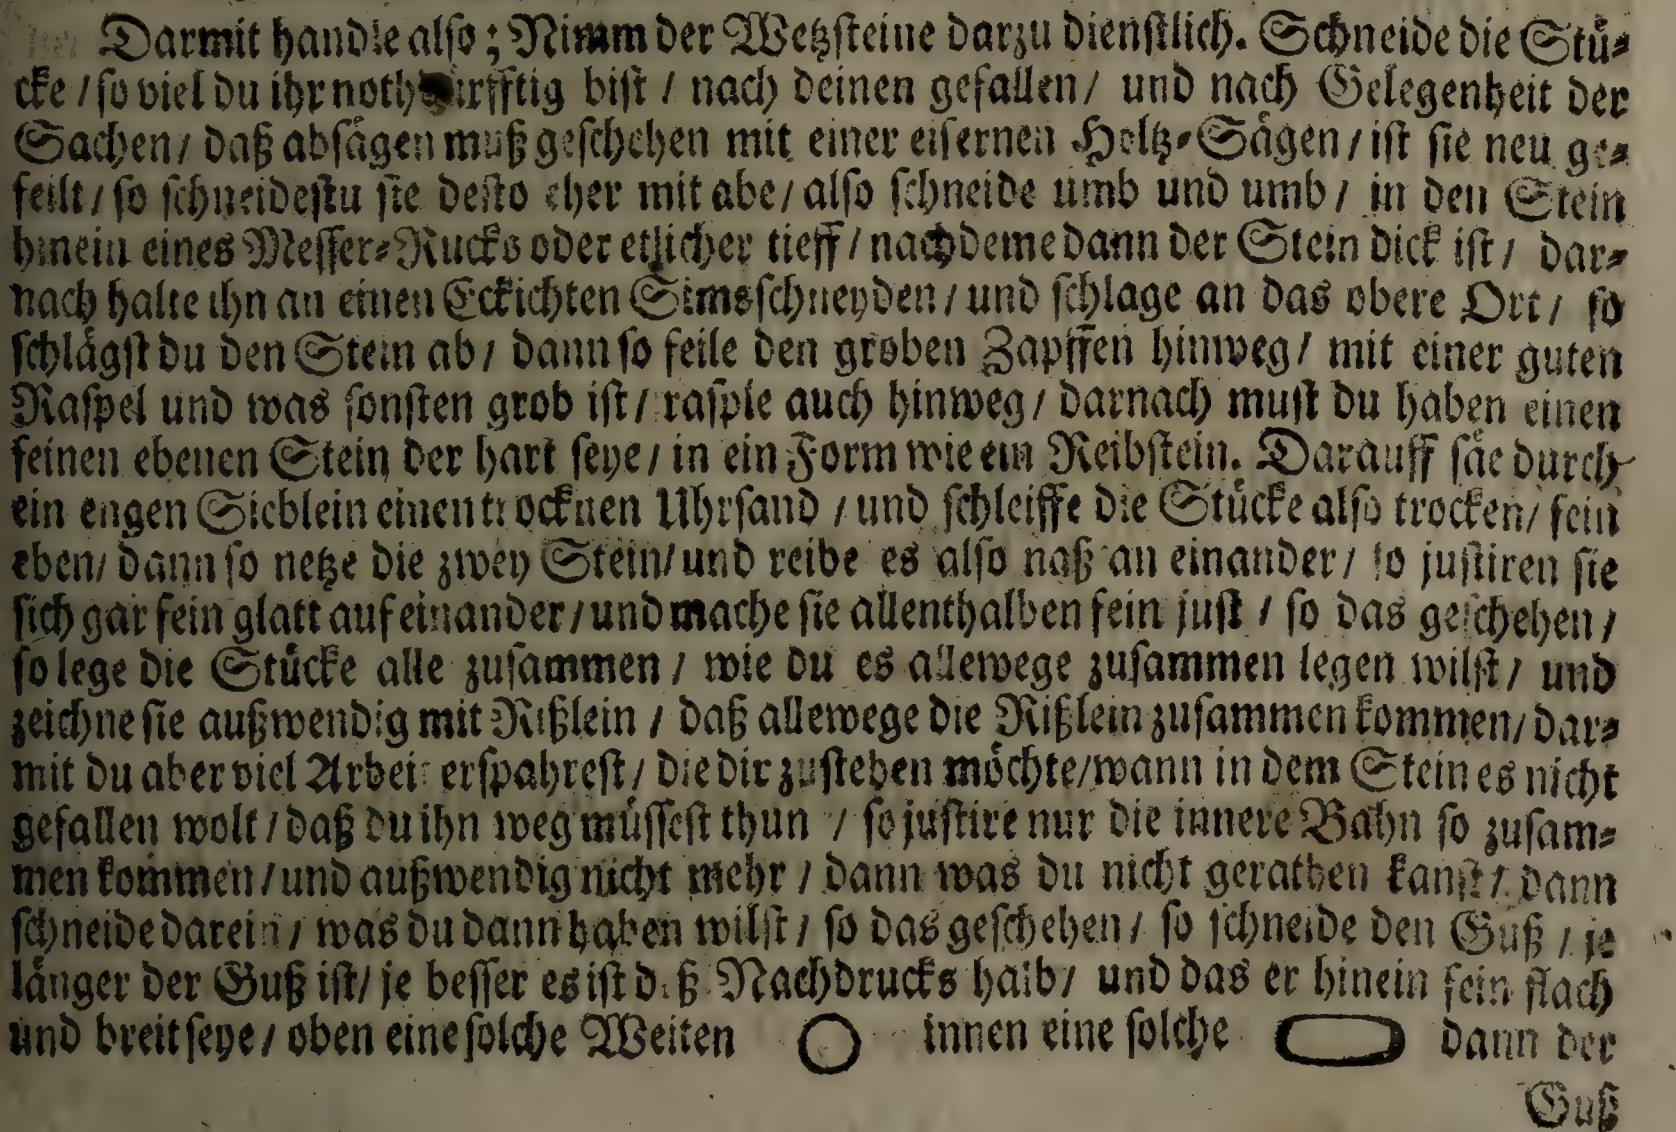 Darmit handle also; Nimm der Wetzsteine darzu dienstlich. Schneide die Stü-
cke / so viel du ihr nothdürfftig bist / nach deinen gefallen / und nach Gelegenheit der
Sachen / daß absägen muß geschehen mit einer eisernen Holtz-Sägen / ist sie neu ge-
feilt / so schneidestu sie desto eher mit abe / also schneide umb und umb / in den Stein
hinein eines Messer-Rucks oder etlicher tieff / nach deme dann der Stein dick ist / dar-
nach halte ihn an einen Eckichten Simsschneyden / und schlage an das obere Ort / so
schlägst du den Stein ab / dann so feile den groben Zapffen hinweg / mit einer guten
Raspel und was sonsten grob ist / rasple auch hinweg / darnach must du haben einen
feinen ebenen Stein der hart seye / in ein Form wie ein Reibstein. Darauff säe durch
ein engen Sieblein einen trocknen Uhrsand / und schleiffe die Stücke also trocken / fein
eben / dann so netze die zwey Stein / und reibe es also naß an einander / so justiren sie
sich gar fein glatt auf einander / und mache sie allenthalben fein just / so das geschehen /
so lege die Stücke alle zusammen / wie du es allewege zusammen legen wilst / und
zeichne sie außwendig mit Rißlein / daß allewege die Rißlein zusammen kommen / dar-
mit du aber viel Arbeit erspahrest / die dir zustehen möchte / wann in dem Stein es nicht
gefallen wolt / daß du ihn weg müssest thun / so justire nur die innere Bahn so zusam-
men kommen / und außwendig nicht mehr / dann was du nicht gerathen kanst / dann
schneide darein / was du dann haben wilst / so das geschehen / so schneide den Guß / je
länger der Guß ist / je besser es ist deß Nachdrucks halb / und das er hinein fein flach
und breit seye / oben eine solche Weiten innen eine solche dann der
Guß